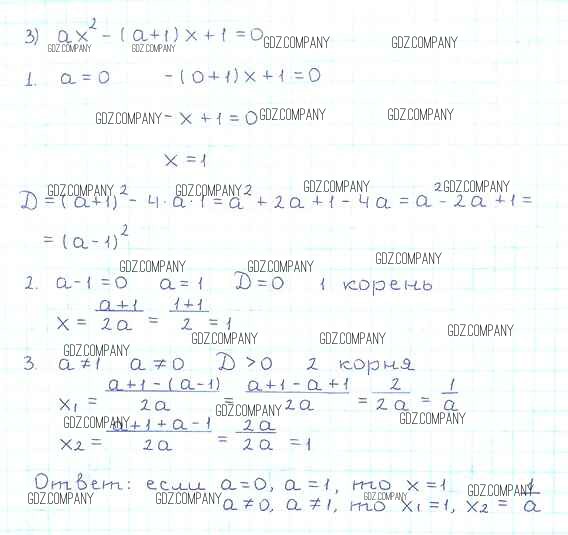 3) ax² - (a+1)x + 1 = 0 GDZ.COMPANY GDZ.COMPANY
GDZ.COMPANY GDZ.COMPANY
1. a = 0 -(0+1)x + 1 = 0
GDZ.COMPANY - x + 1 = 0 GDZ.COMPANY GDZ.COMPANY
x = 1
GDZ.COMPANY GDZ.COMPANY GDZ.COMPANY GDZ.COMPANY
D = (a+1)² - 4·a·1 = a² + 2a + 1 - 4a = a² - 2a + 1 =
= (a-1)²
GDZ.COMPANY GDZ.COMPANY GDZ.COMPANY
2. a-1=0 a=1 D=0 1 корень
x = (a+1)/(2a) = (1+1)/2 = 1
GDZ.COMPANY GDZ.COMPANY GDZ.COMPANY
GDZ.COMPANY
3. a≠1 a≠0 D>0 2 корня
x₁ = (a+1-(a-1))/(2a) = (a+1-a+1)/(2a) = 2/(2a) = 1/a
GDZ.COMPANY GDZ.COMPANY GDZ.COMPANY
x₂ = (a+1+a-1)/(2a) = (2a)/(2a) = 1
Ответ: если a=0, a=1, то x=1
GDZ.COMPANY GDZ.COMPANY GDZ.COMPANY GDZ.COMPANY
a≠0, a≠1, то x₁=1, x₂ = 1/a